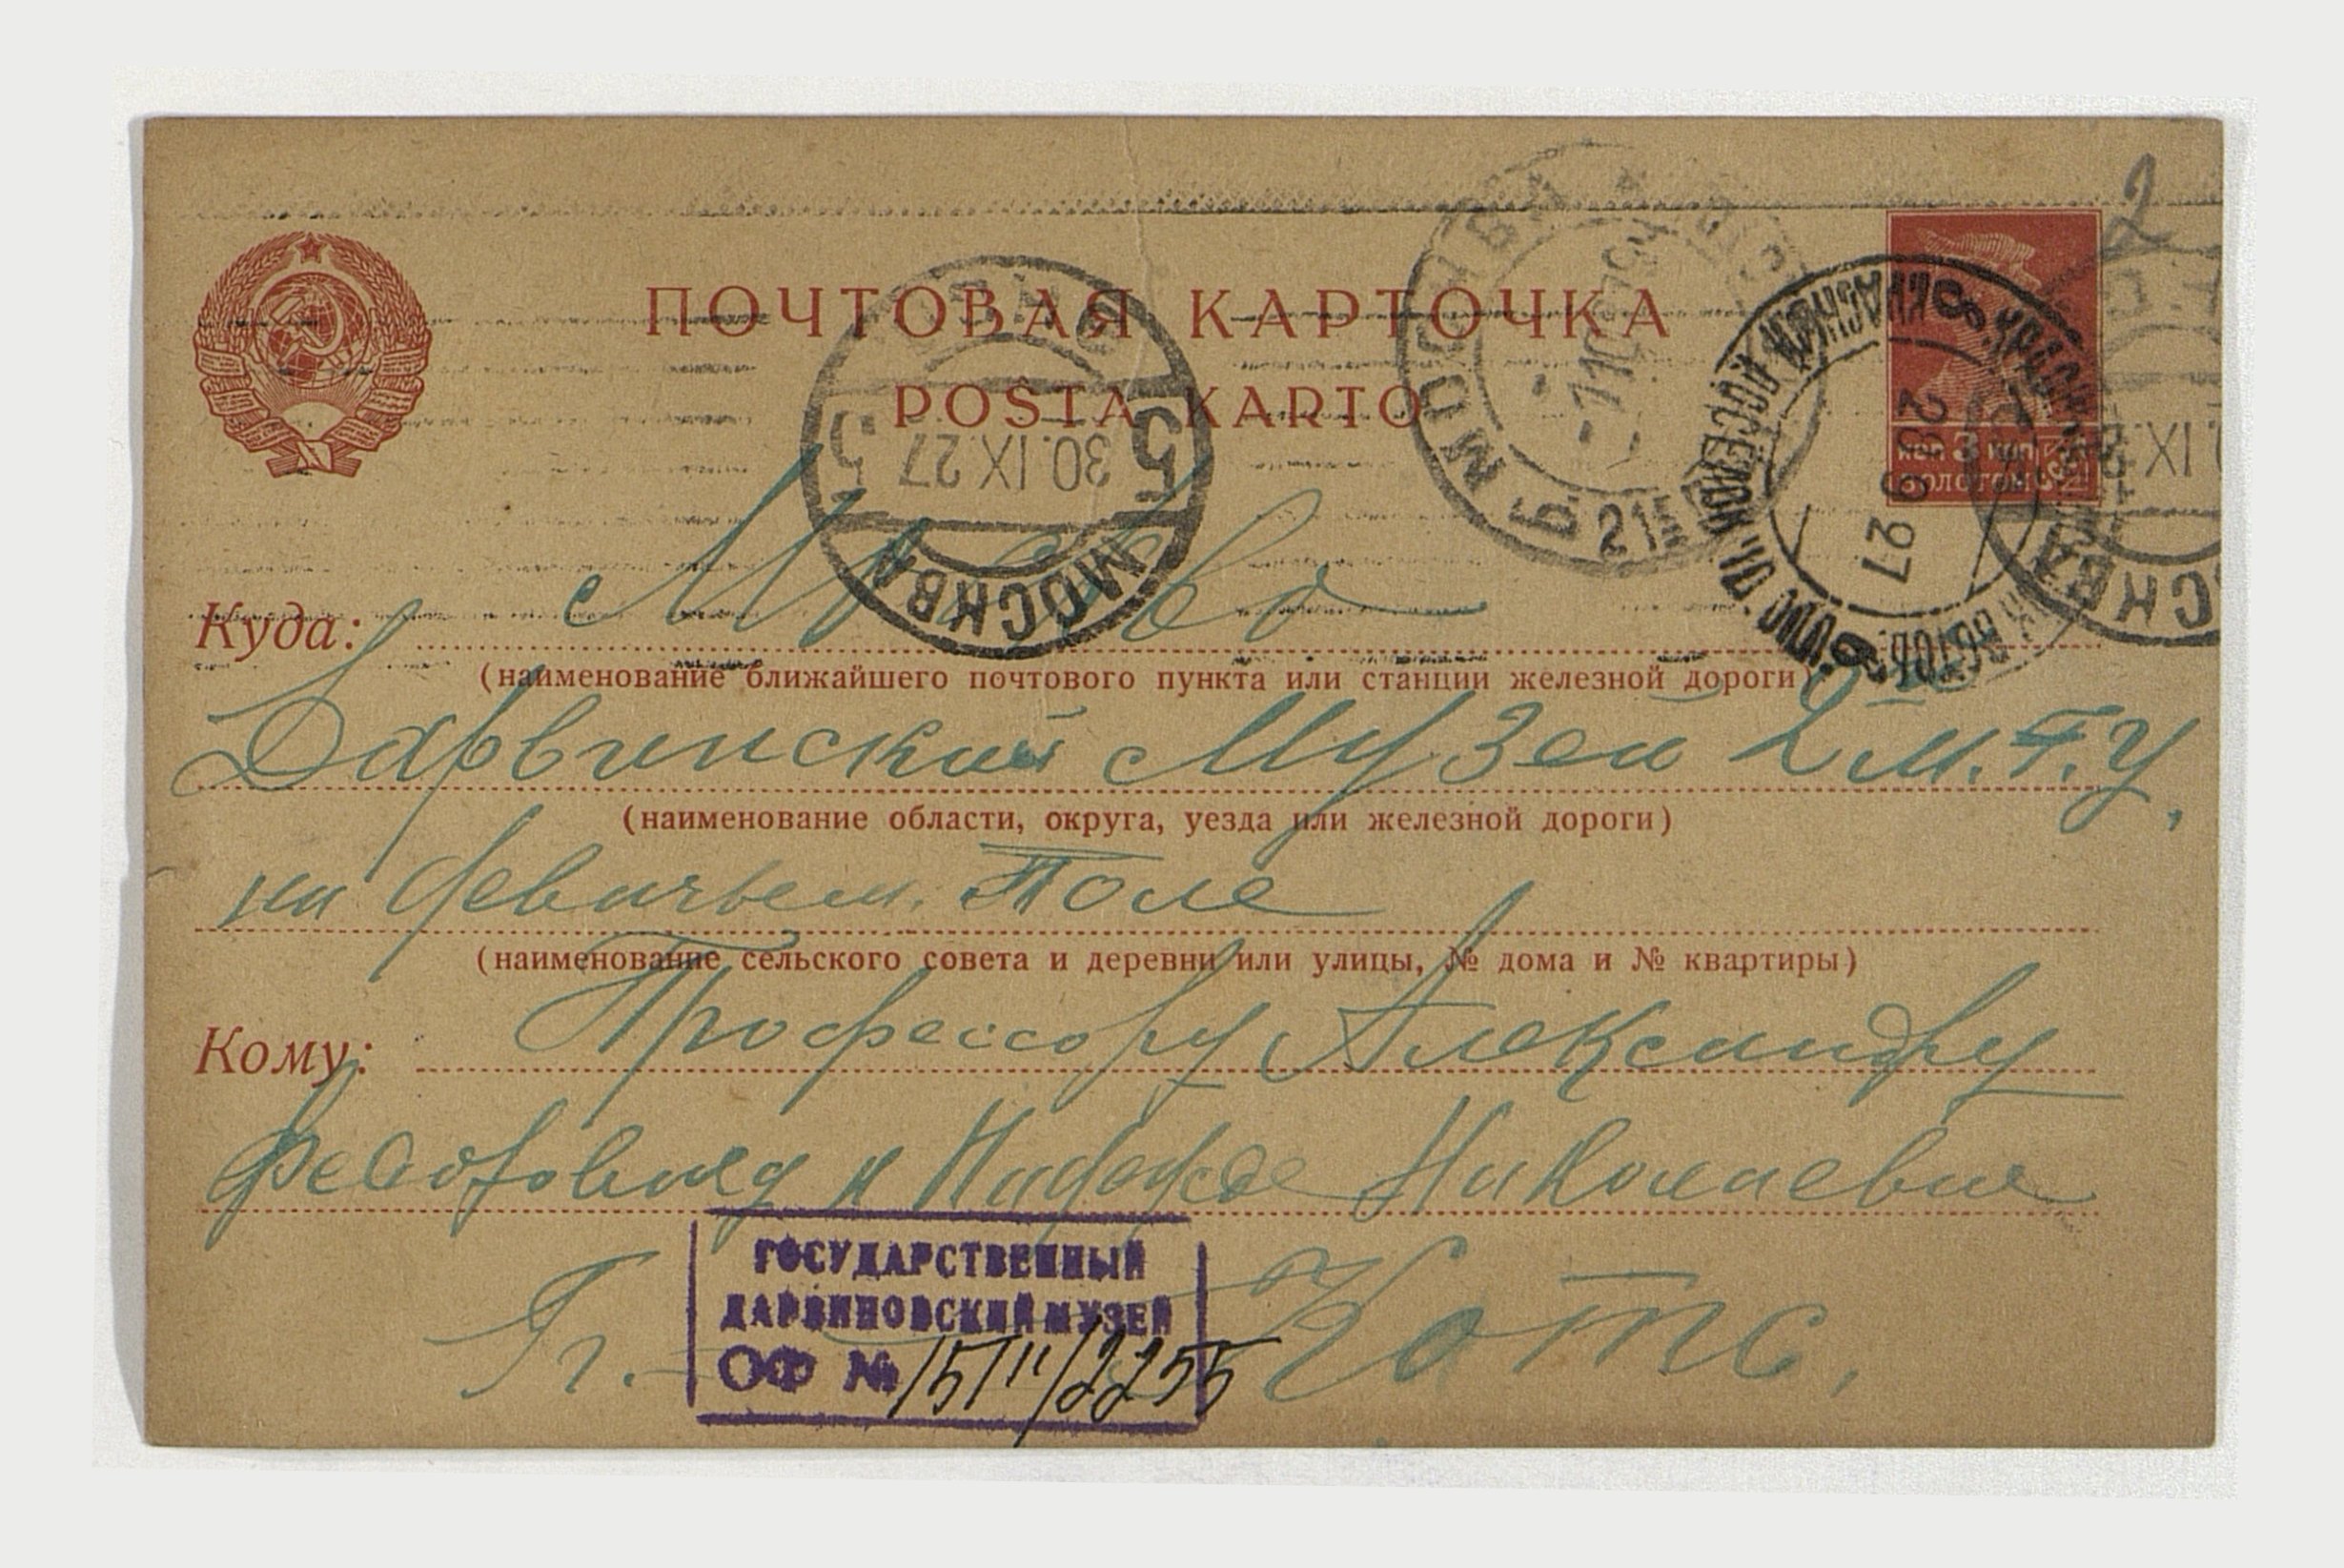 2
ПОЧТОВАЯ КАРТОЧКА
POŜTA KARTO
МОСКВА
5 30.IX.27 5
МОСКВА
28 9 27
коп 3 коп
золотом
МОСКВА
IX
Куда: Москва
(наименование ближайшего почтового пункта или станции железной дороги)
Дарвинский Музей 2й М.Г.У,
(наименование области, округа, уезда или железной дороги)
на Девичьем. Поле
(наименование сельского совета и деревни или улицы, № дома и № квартиры)
Кому: Профессору Александру
Федоровичу и Надежде Николаевне
Гг. Котс.
ГОСУДАРСТВЕННЫЙ
ДАРВИНОВСКИЙ МУЗЕЙ
ОФ №